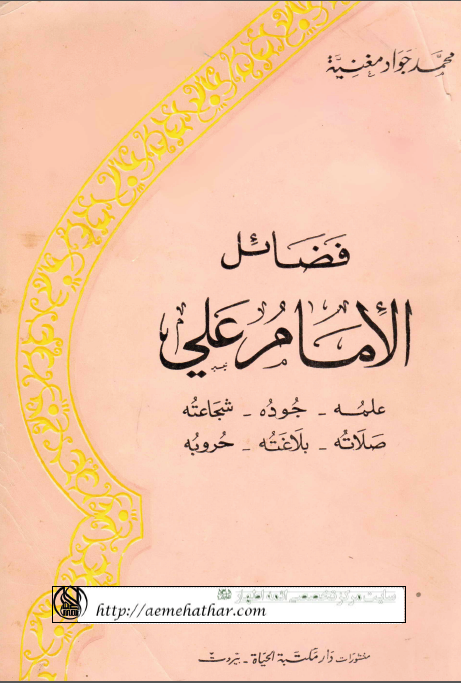 محمد جواد مغنية
فَضَائل
الإمَامُ عَلي
علمُه - جُودُه - شجَاعتُه
صَلَاتُه - بلاَغَتُه - حُروبُه
سایت مرکز تخصصی ائمه اطهار
http://aemehathar.com
منشورات دار مكتبة الحياة - بيروت